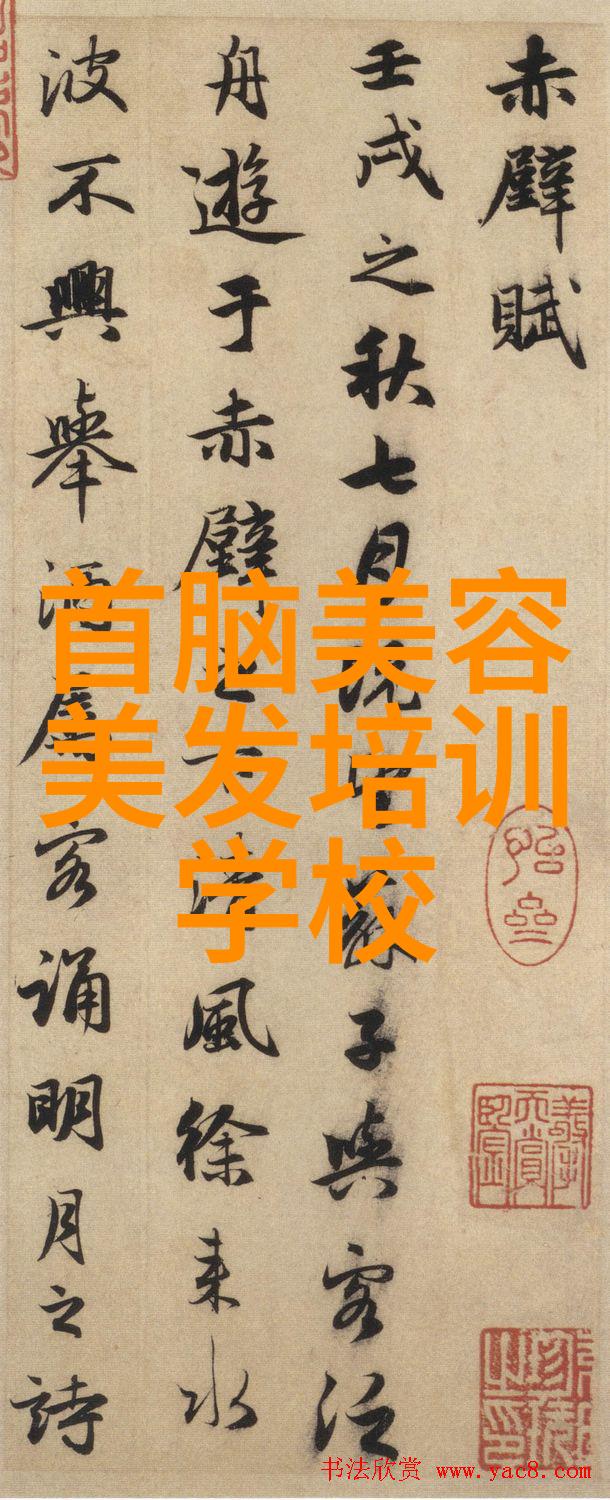 赤壁賦
壬戌之秋七月既蘇子與客泛
舟遊于赤壁之下清風徐来水
波不興舉酒屬客誦明月之詩
首脑美容
美发培训
学校
书法欣赏 www.yac8.com